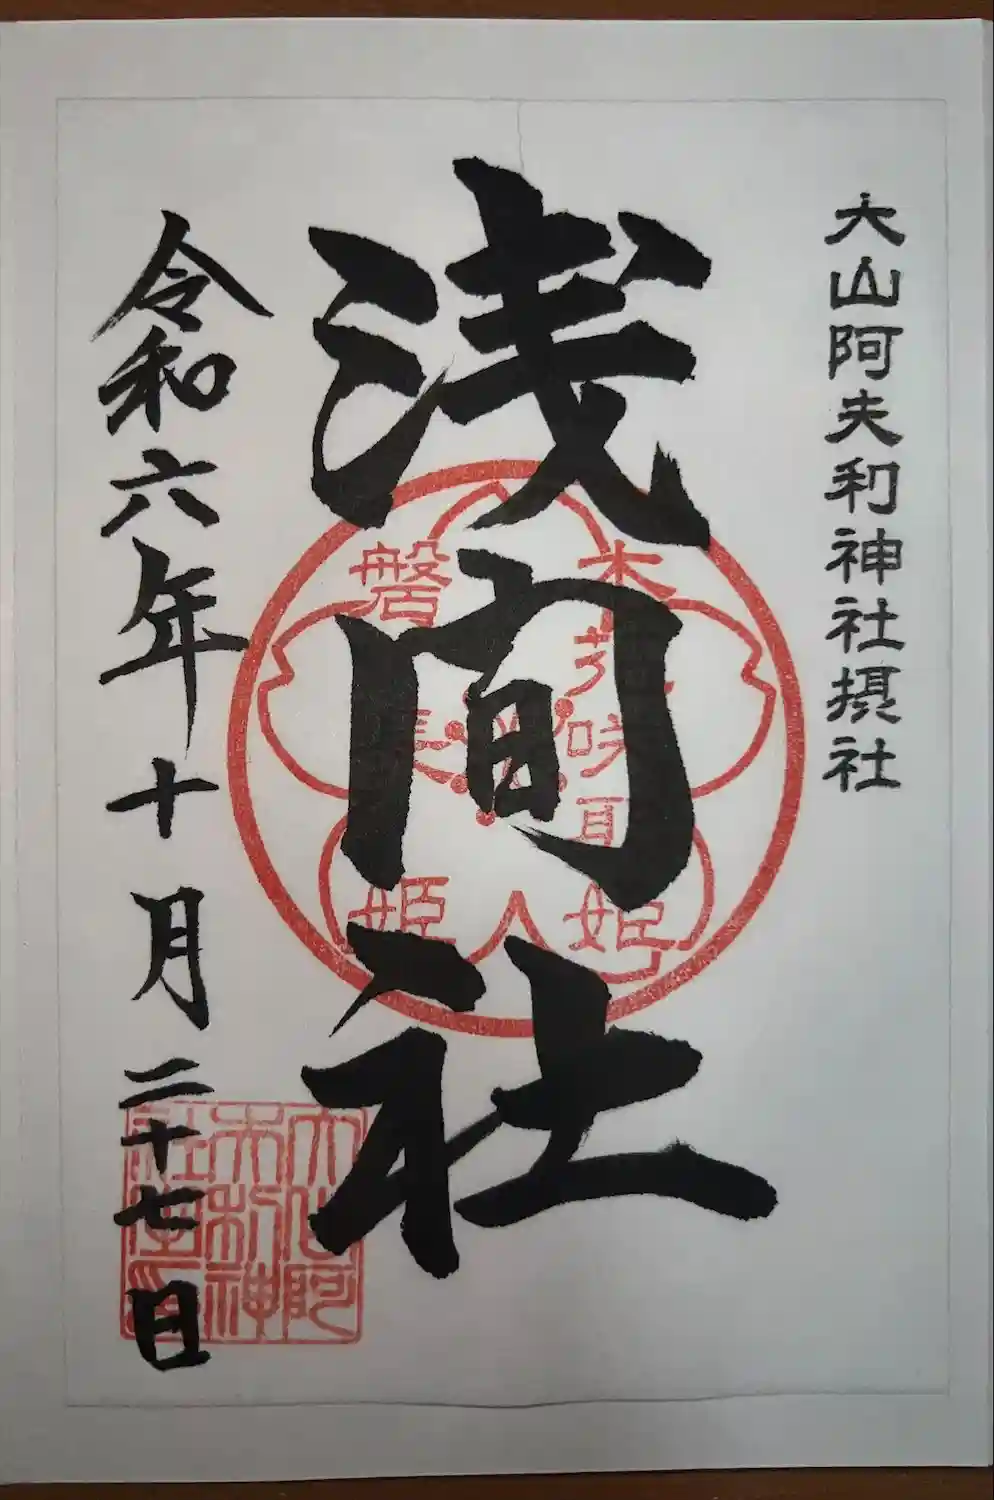 大山阿夫利神社摂社
浅间社
令和六年十月二十七日
木花咲耶姫
磐長姫
大山阿
夫利神
社